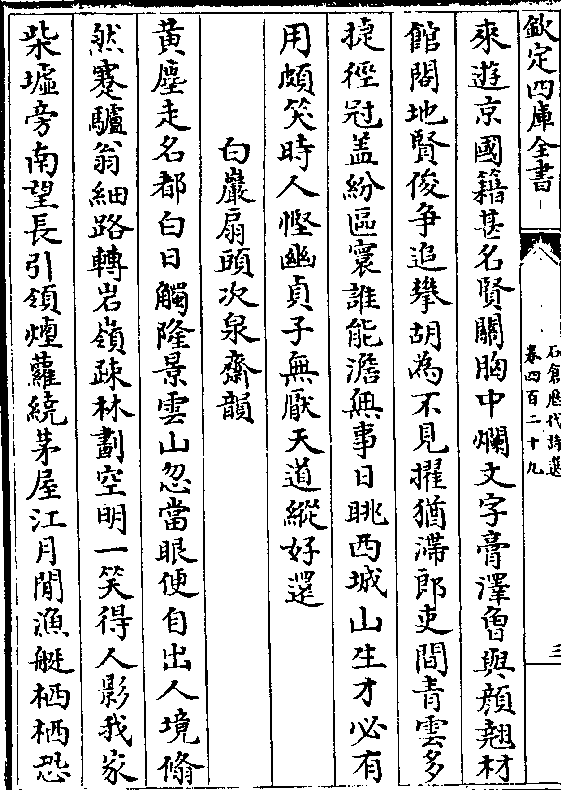 欽定四庫全書
石倉歷代詩選
卷四百二十九
三
來遊京國籍甚名賢關胸中爛文字膏澤曾與顏翹材
館閣地賢俊争追攀胡為不見擢猶滯郎吏間青雲多
捷徑冠盖紛區寰誰能澹無事日眺西城山生才必有
用頗笑時人慳幽貞子無厭天道縱好還
白巖扇頭次泉齋韻
黄塵走名都白日觸隆景雲山忽當眼便自出人境翛
然蹇驢翁細路轉岩嶺疎林劃空明一笑得人影我家
柴墟旁南望長引領煙蘿繞茅屋江月閒漁艇栖栖恐